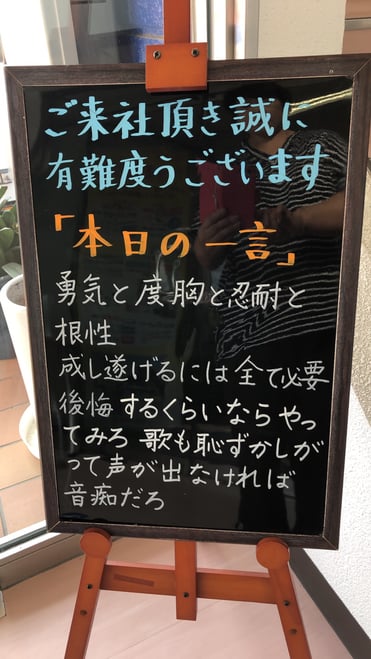 ご来社頂き誠に
有難度うございます
「本日の一言」
勇気と度胸と忍耐と
根性
成し遂げるには全て必要
後悔するくらいならやっ
てみろ 歌も恥ずかしが
って声が出なければ
音痴だろ